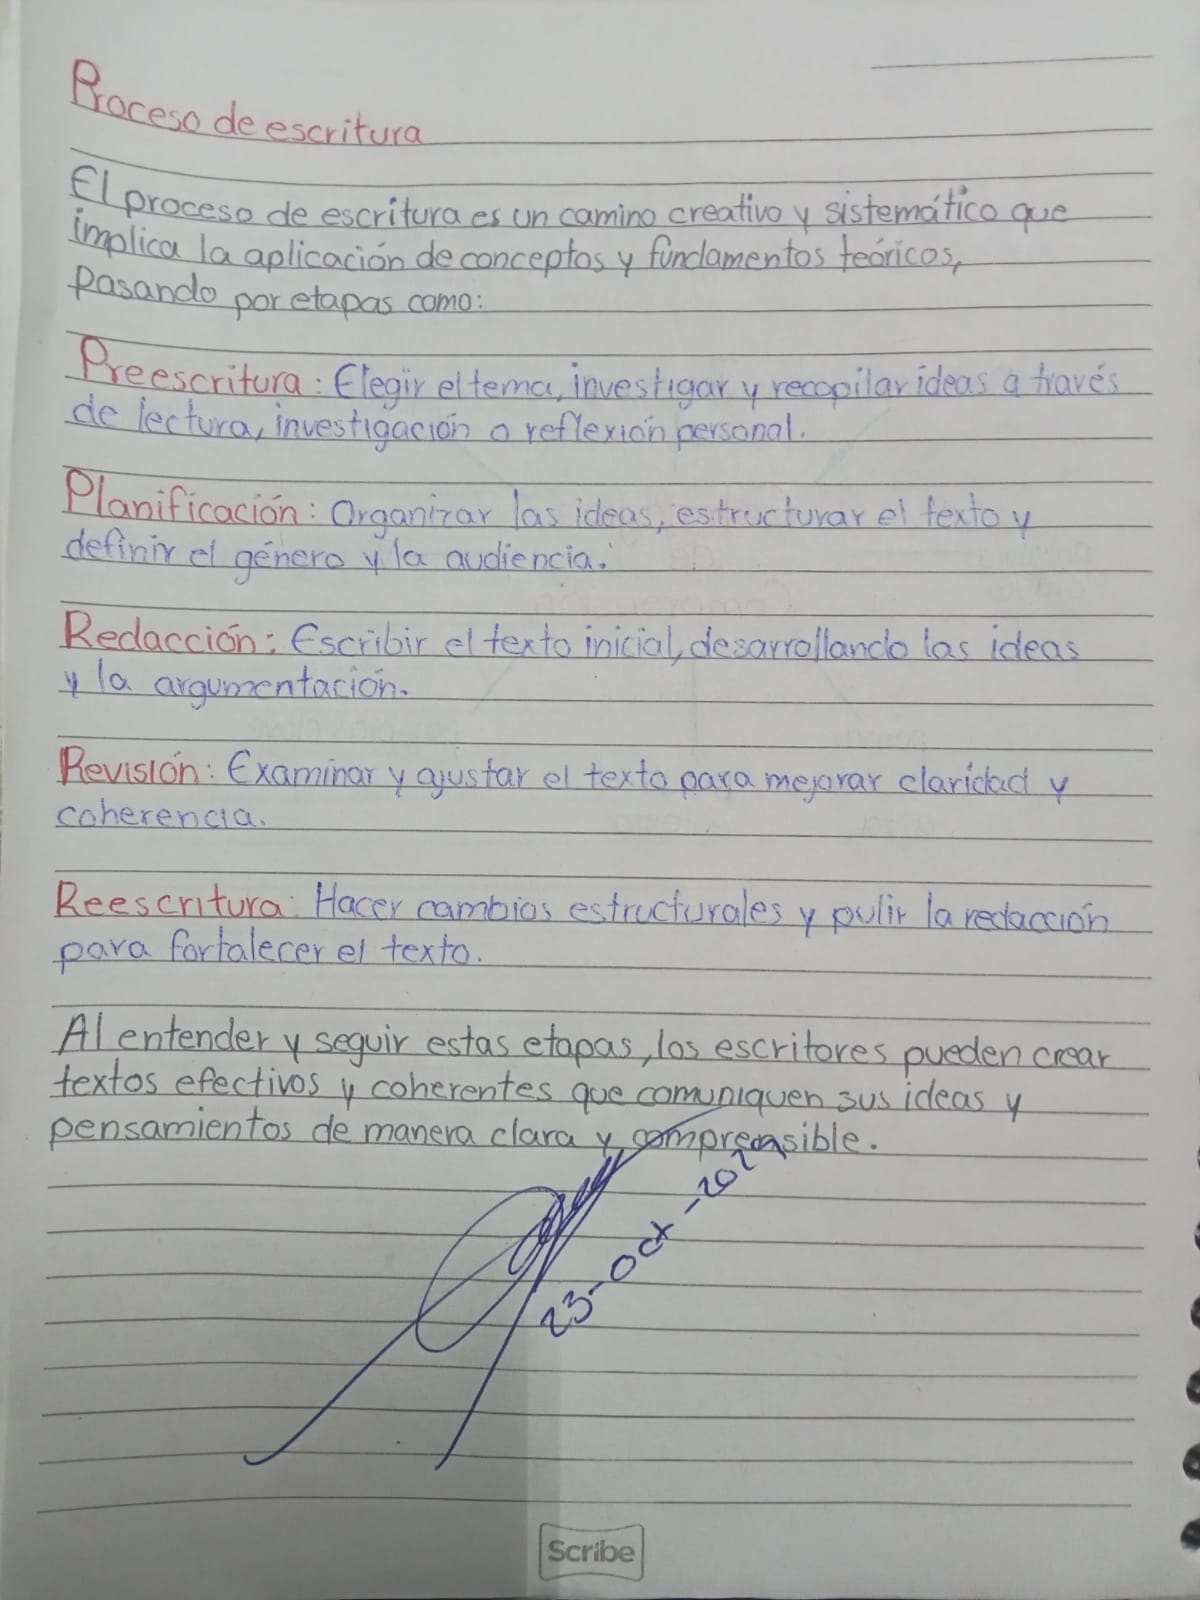 Proceso de escritura
El proceso de escritura es un camino creativo y sistemático que
implica la aplicación de conceptos y fundamentos teóricos,
pasando por etapas como:
Preescritura: Elegir el tema, investigar y recopilar ideas a través
de lectura, investigación o reflexión personal.
Planificación: Organizar las ideas, estructurar el texto y
definir el género y la audiencia.
Redacción: Escribir el texto inicial, desarrollando las ideas
y la argumentación.
Revisión: Examinar y ajustar el texto para mejorar claridad y
coherencia.
Reescritura: Hacer cambios estructurales y pulir la redacción
para fortalecer el texto.
Al entender y seguir estas etapas, los escritores pueden crear
textos efectivos y coherentes que comuniquen sus ideas y
pensamientos de manera clara y comprensible.
23-Oct-202
Scribe